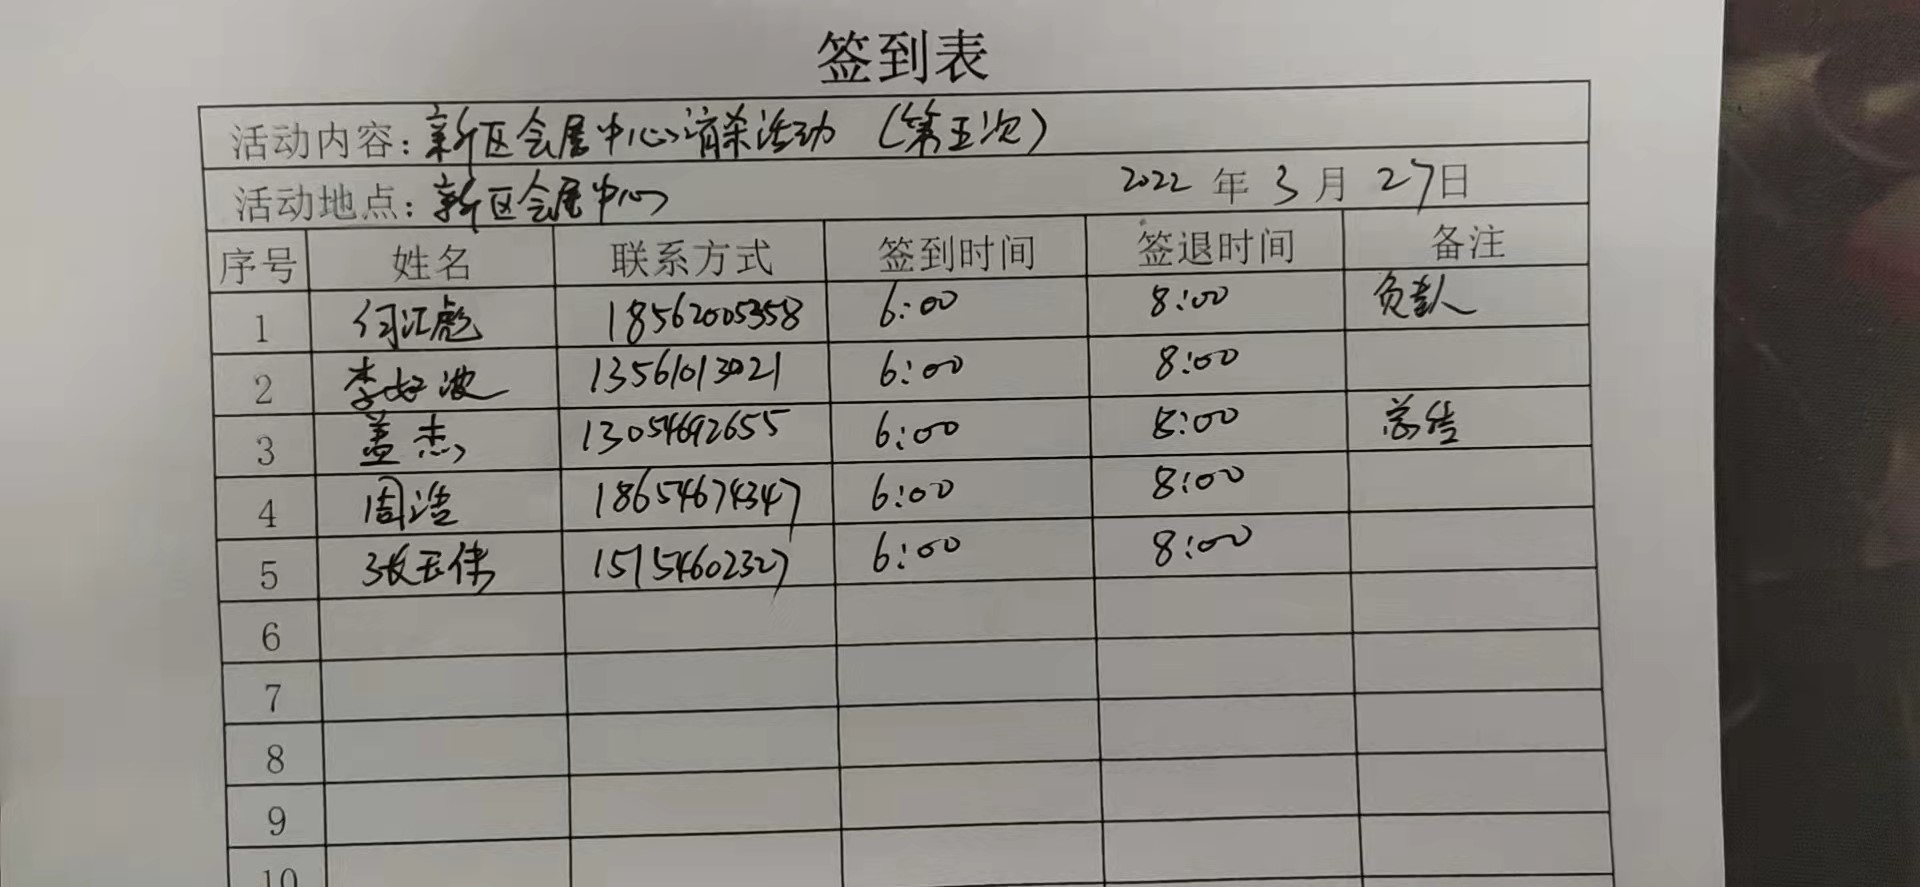 签到表
活动内容：新区会展中心消杀活动（第五次）
活动地点：新区会展中心 2022 年 3 月 27日
序号 姓名 联系方式 签到时间 签退时间 备注
1 何江彪 18562005358 6:00 8:00 负责人
2 李好波 13561013021 6:00 8:00
3 盖杰 13054692655 6:00 8:00 总结
4 周浩 18654674347 6:00 8:00
5 张玉伟 15154602327 6:00 8:00
6
7
8
9
10